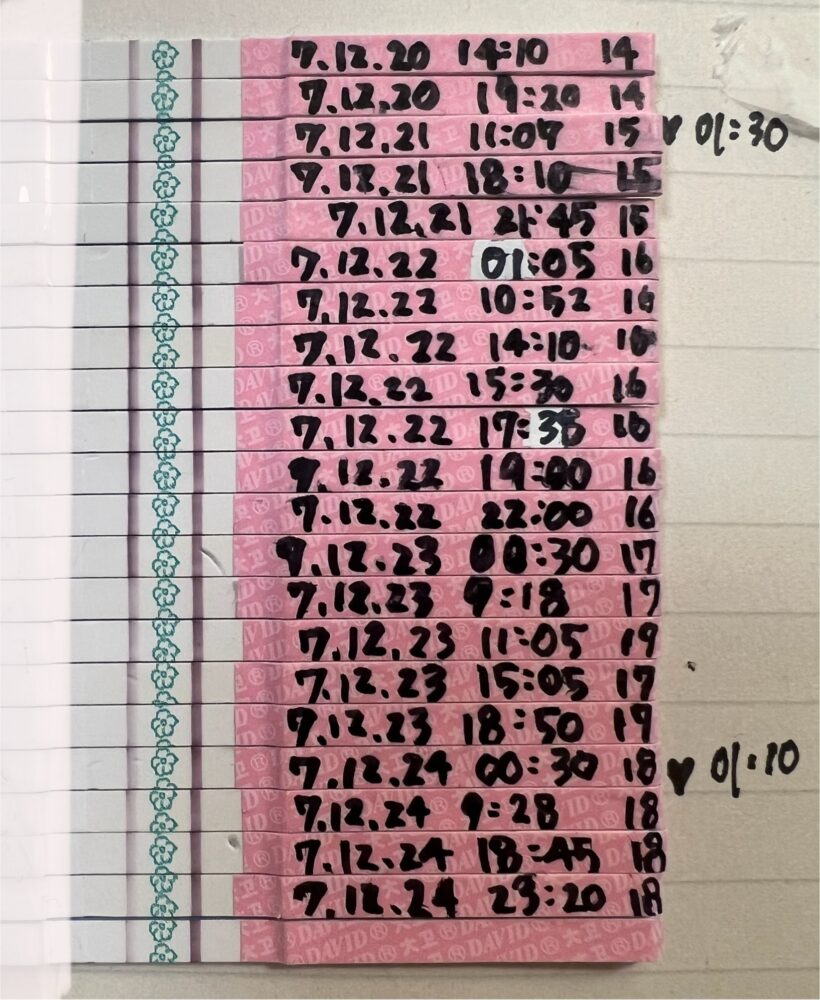 7.12.20 14:10 14
7.12.20 19:20 14
7.12.21 11:07 15 ♥ 01:30
7.12.21 18:10 15
7.12.21 21:45 15
7.12.22 01:05 16
7.12.22 10:52 16
7.12.22 14:10 16
7.12.22 15:30 16
7.12.22 17:35 16
7.12.22 19:00 16
7.12.22 22:00 16
7.12.23 00:30 17
7.12.23 9:18 17
7.12.23 11:05 17
7.12.23 15:05 17
7.12.23 18:50 17
7.12.24 00:30 18 ♥ 01:10
7.12.24 9:28 18
7.12.24 18:45 18
7.12.24 23:20 18
DAVID® 大卫® DAVID® 大卫® DAVID® 大卫®